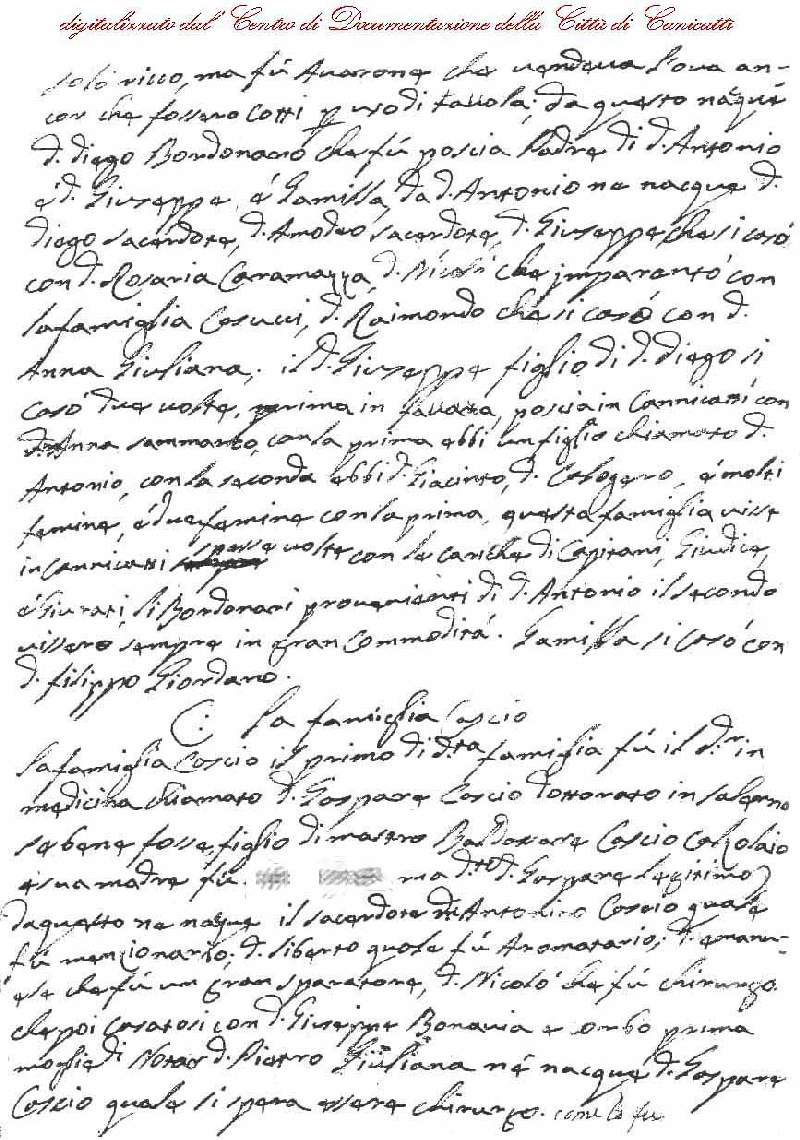 digitalizzato dal Centro di Documentazione della Città di Canicattì
solo ricco, ma fù Auarone che uendeua l'oua an-
cor che fossero Cotti p uso di tauola; da questo nacque
d. diego Bordonaro che fù poscia Padre di d. Antonio
é d. Giuseppe, é Camilla, da d. Antonio ne nacque d.
diego sacerdote, d. Amodeo sacerdote, d. Giuseppe che si casò
con d. Rosaria Caramazza, d. Nicolò che imparentò con
la famiglia Cosucci, d. Raimondo che si casò con d.
Anna Giuliana; il d. Giuseppe figlio di d. diego si
casò due uolte, prima in fauara, poscia in Cannicattì con
d. Anna sammarco, con la prima ebbi un figlio chiamato d.
Antonio, con la seconda ebbi d. Giacinto, d. Calogero, é molti
femine, é due femine con la prima, questa famiglia uisse
in Cannicattì spesse uolte con le cariche di Capitani, Giudice,
é Giurati, li Bordonari prouenienti di d. Antonio il secondo
uissero sempre in gran Commodità. Camilla si casò con
d. filippo Giordano.
C: La famiglia Coscio
la famiglia Coscio il primo di d.ta famiglia fù il d.r in
medicina chiamato d. Gaspare Coscio dottorato in salerno
se bene fosse figlio di mastro Baldassare Coscio Calzolaio
é sua madre fù ma d.to d. Gaspare legitimo
da questo ne nacque il sacerdote d. Antonino Coscio quale
fù menzionario; d. liberto quale fù Aromatario; d. emanu-
ele che fù un gran sparatore, d. Nicolò che fù chirurgo.
che poi Casatosi con d. Giuseppe Bonauia e orbo prima
moglie di Notar d. Pietro Giuliana né nacque d. Gaspare
Coscio quale si spera essere chirurgo. come lo fu